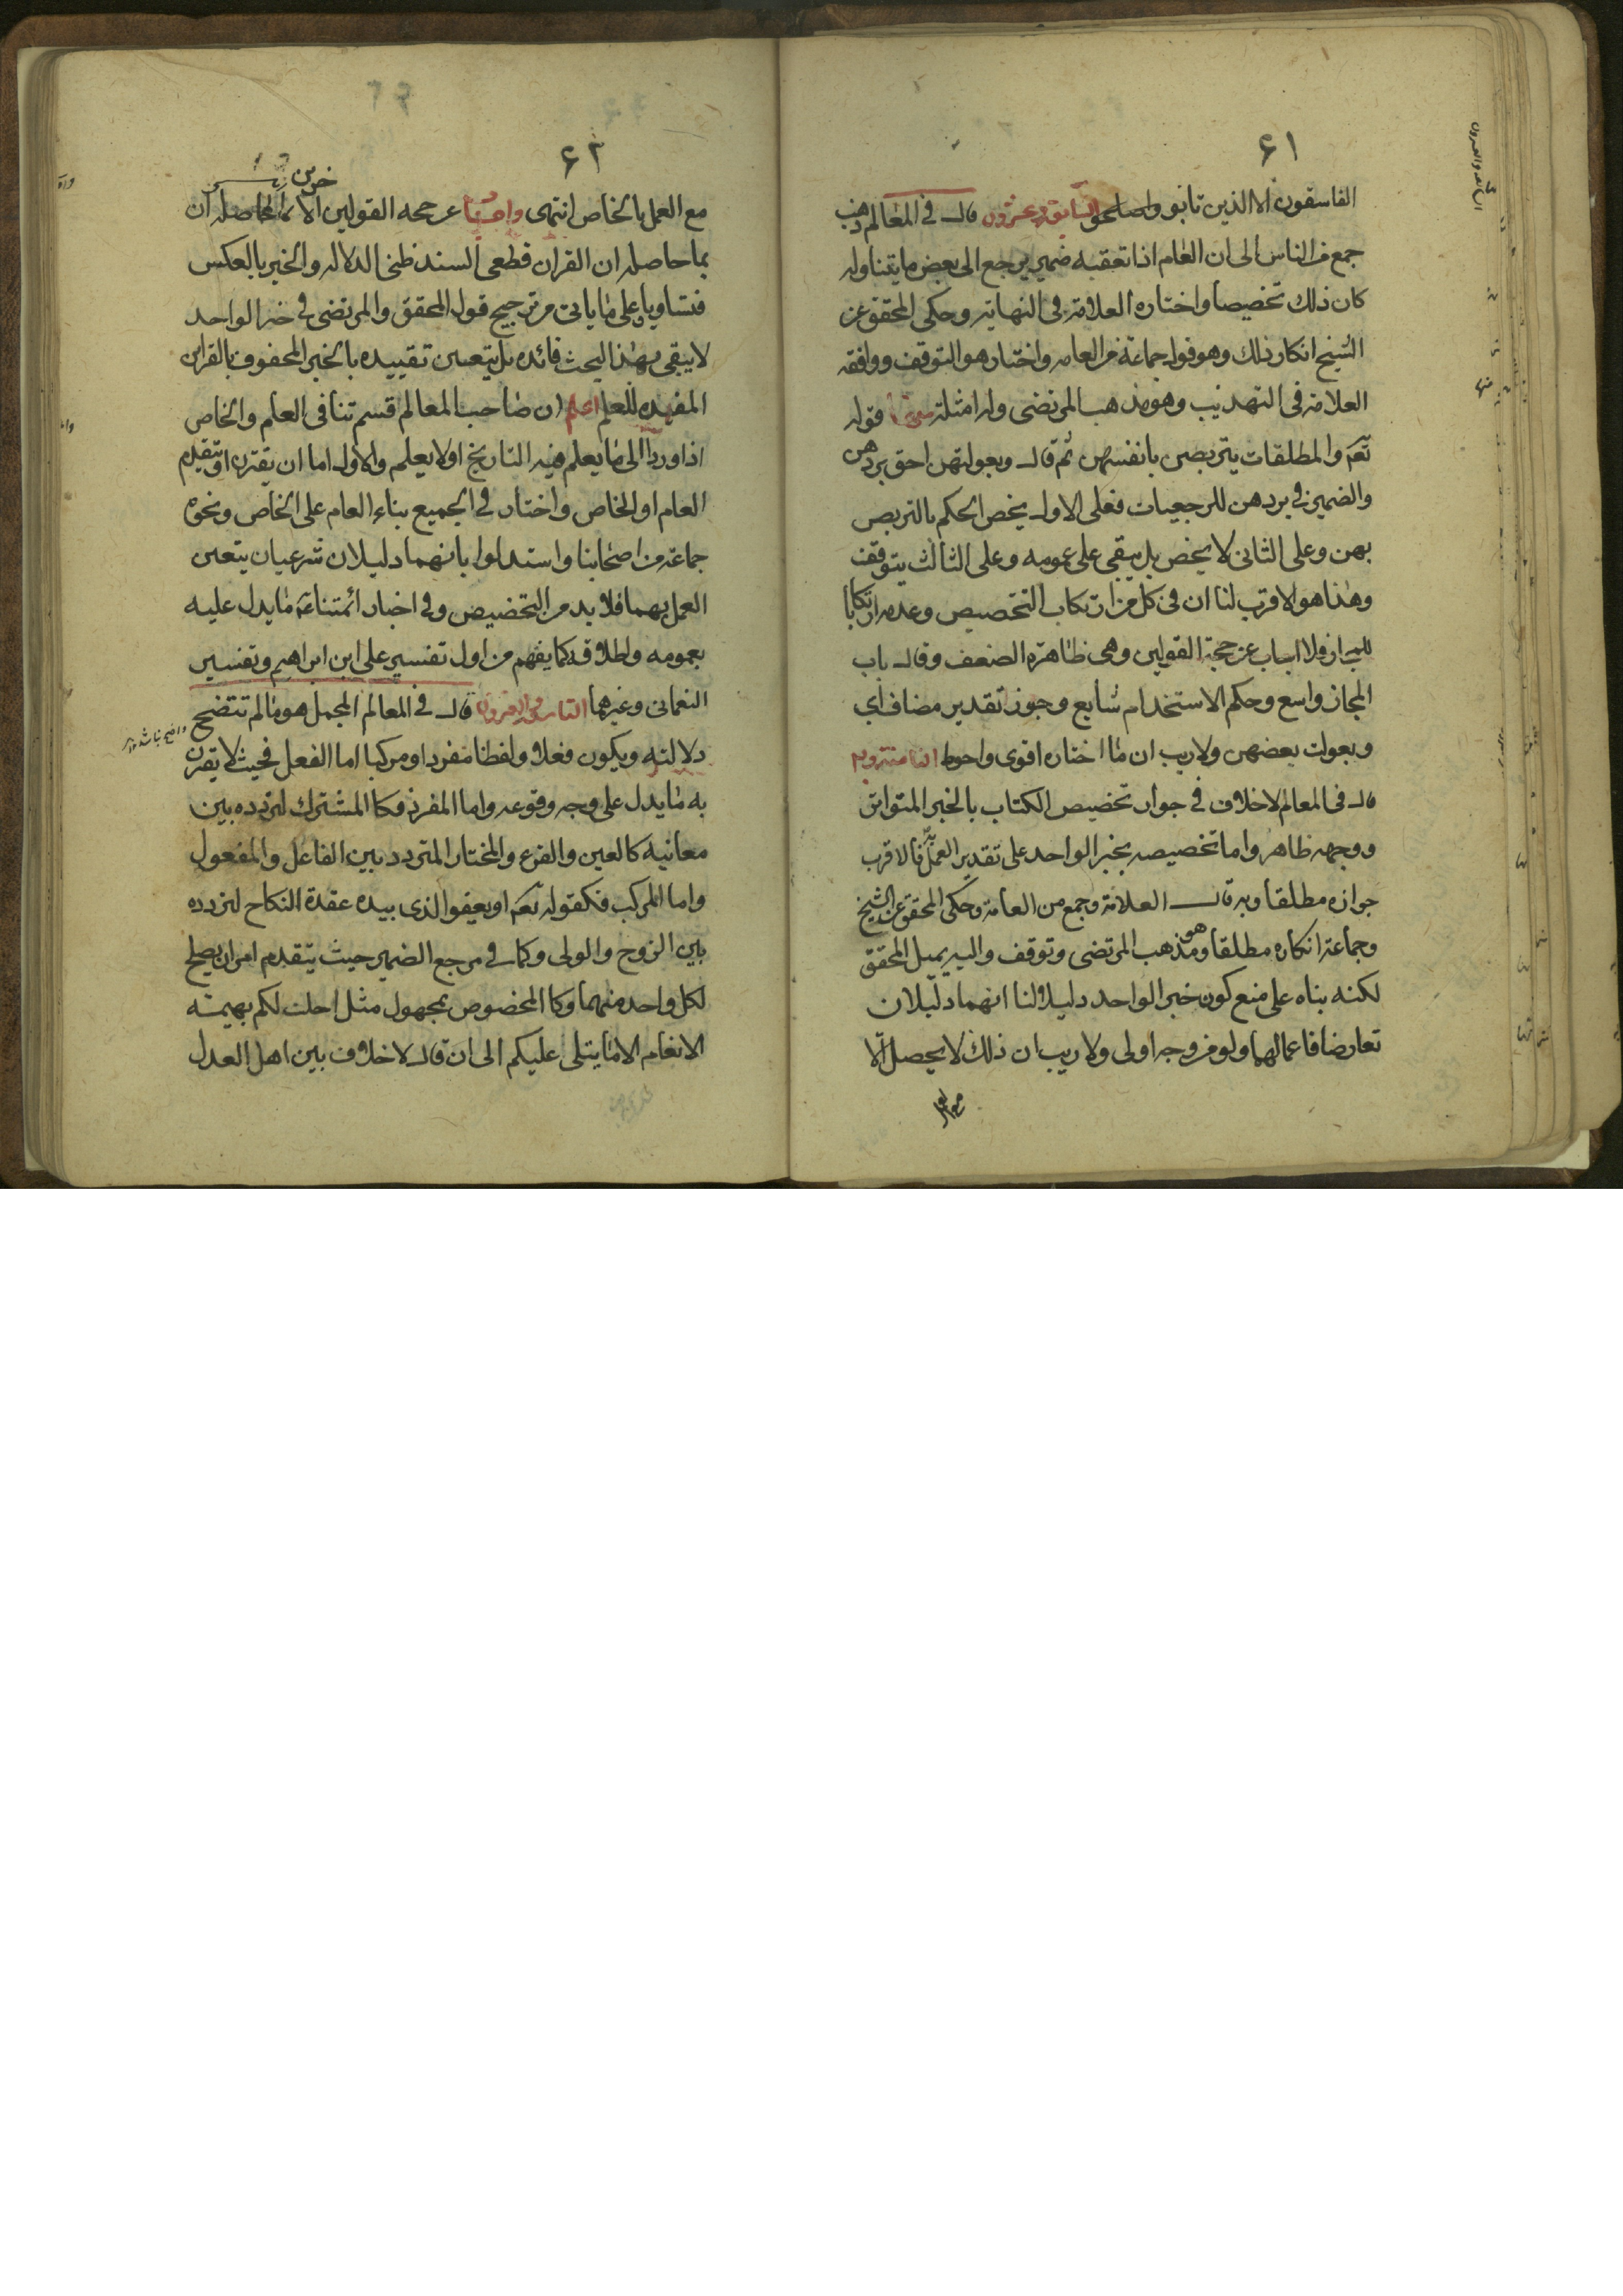 ۶۱
الفاسقون الا الذين تابوا واصلحوا السابع وعشرون قال في المعالم ذهب
جمع من الناس الى ان العام اذا تعقبه ضمير يرجع الى بعض ما يتناوله
كان ذلك تخصيصا واختاره العلامة في النهاية وحكى المحقق عن
الشيخ انكار ذلك وهو قول جماعة من العامه واختار هو التوقف ووافقه
العلامة في التهذيب وهو مذهب المرتضى وله امثلة منها قوله
تعم والمطلقات يتربصن بانفسهن ثم قال وبعولتهن احق بردهن
والضمير في بردهن للرجعيات فعلى الاول يخص الحكم بالتربص
بهن وعلى الثاني لا يخص بل يبقى على عمومه وعلى الثالث يتوقف
وهذا هو الاقرب لنا ان في كل من ارتكاب التخصيص وعدمه ارتكابا
للمجاز فلا اجاب عن حجة القولين وهي ظاهرة الضعف وقال باب
المجاز واسع وحكم الاستخدام شايع وجوز تقدير مضاف اي
وبعولت بعضهن ولا ريب ان ما اختاره اقوى واحوط
قال في المعالم لا خلاف في جواز تخصيص الكتاب بالخبر المتواتر
ووجهه ظاهر واما تخصيصه بخبر الواحد على تقدير العمل به فالاقرب
جوازه مطلقا وبه قال العلامة وجمع من العامة وحكى المحقق عن الشيخ
وجماعة انكاره مطلقا وهو مذهب المرتضى وتوقف واليه يميل المحقق
لكنه بناه على منع كون خبر الواحد دليلا لنا انهما دليلان
تعارضا فاعمالهما ولو من وجه اولى ولا ريب ان ذلك لا يحصل الا
مع العمل
۶۲
مع العمل بالخاص انتهى واجيبا عن حجه القولين الا
بما حاصله ان القران قطعي السند ظني الدلاله والخبر بالعكس
فتساويا وعلى ما ياتي من ترجيح قول المحقق والمرتضى في خبر الواحد
لا يبقى بهذا البحث فائده بل يتعين تقييده بالخبر المحفوف بالقراين
المفيده للعلم اعلم ان صاحب المعالم قسم تنافي العام والخاص
اذا وردا الى ما يعلم فيه التاريخ اولا يعلم والاول اما ان يقترنا او يتقدم
العام او الخاص واختار في الجميع بناء العام على الخاص ونحوه
جماعة من اصحابنا واستدلوا بانهما دليلان شرعيان يتعين
العمل بهما فلا بد من التخصيص وفي اخبار ائمتنا عم ما يدل عليه
بعمومه واطلاقه كما يفهم من اول تفسير علي ابن ابراهيم وتفسير
النعماني وغيرهما التاسع والعشرون قال في المعالم المجمل هو ما لم تتضح
دلالته ويكون فعلا ولفظا مفردا ومركبا اما الفعل فحيث لا يقترن
به ما يدل على وجه وقوعه واما المفرد فكالمشترك لتردده بين
معانيه كالعين والقرء والمختار المتردد بين الفاعل والمفعول
واما المركب فكقوله تعم او يعفوا الذي بيده عقدة النكاح لتردده
بين الزوج والولي وكما في مرجع الضمير حيث يتقدم امران يصلح
لكل واحد منهما وكالمخصوص بمجهول مثل احلت لكم بهيمة
الانعام الا ما يتلى عليكم الى ان قال لا خلاف بين اهل العدل